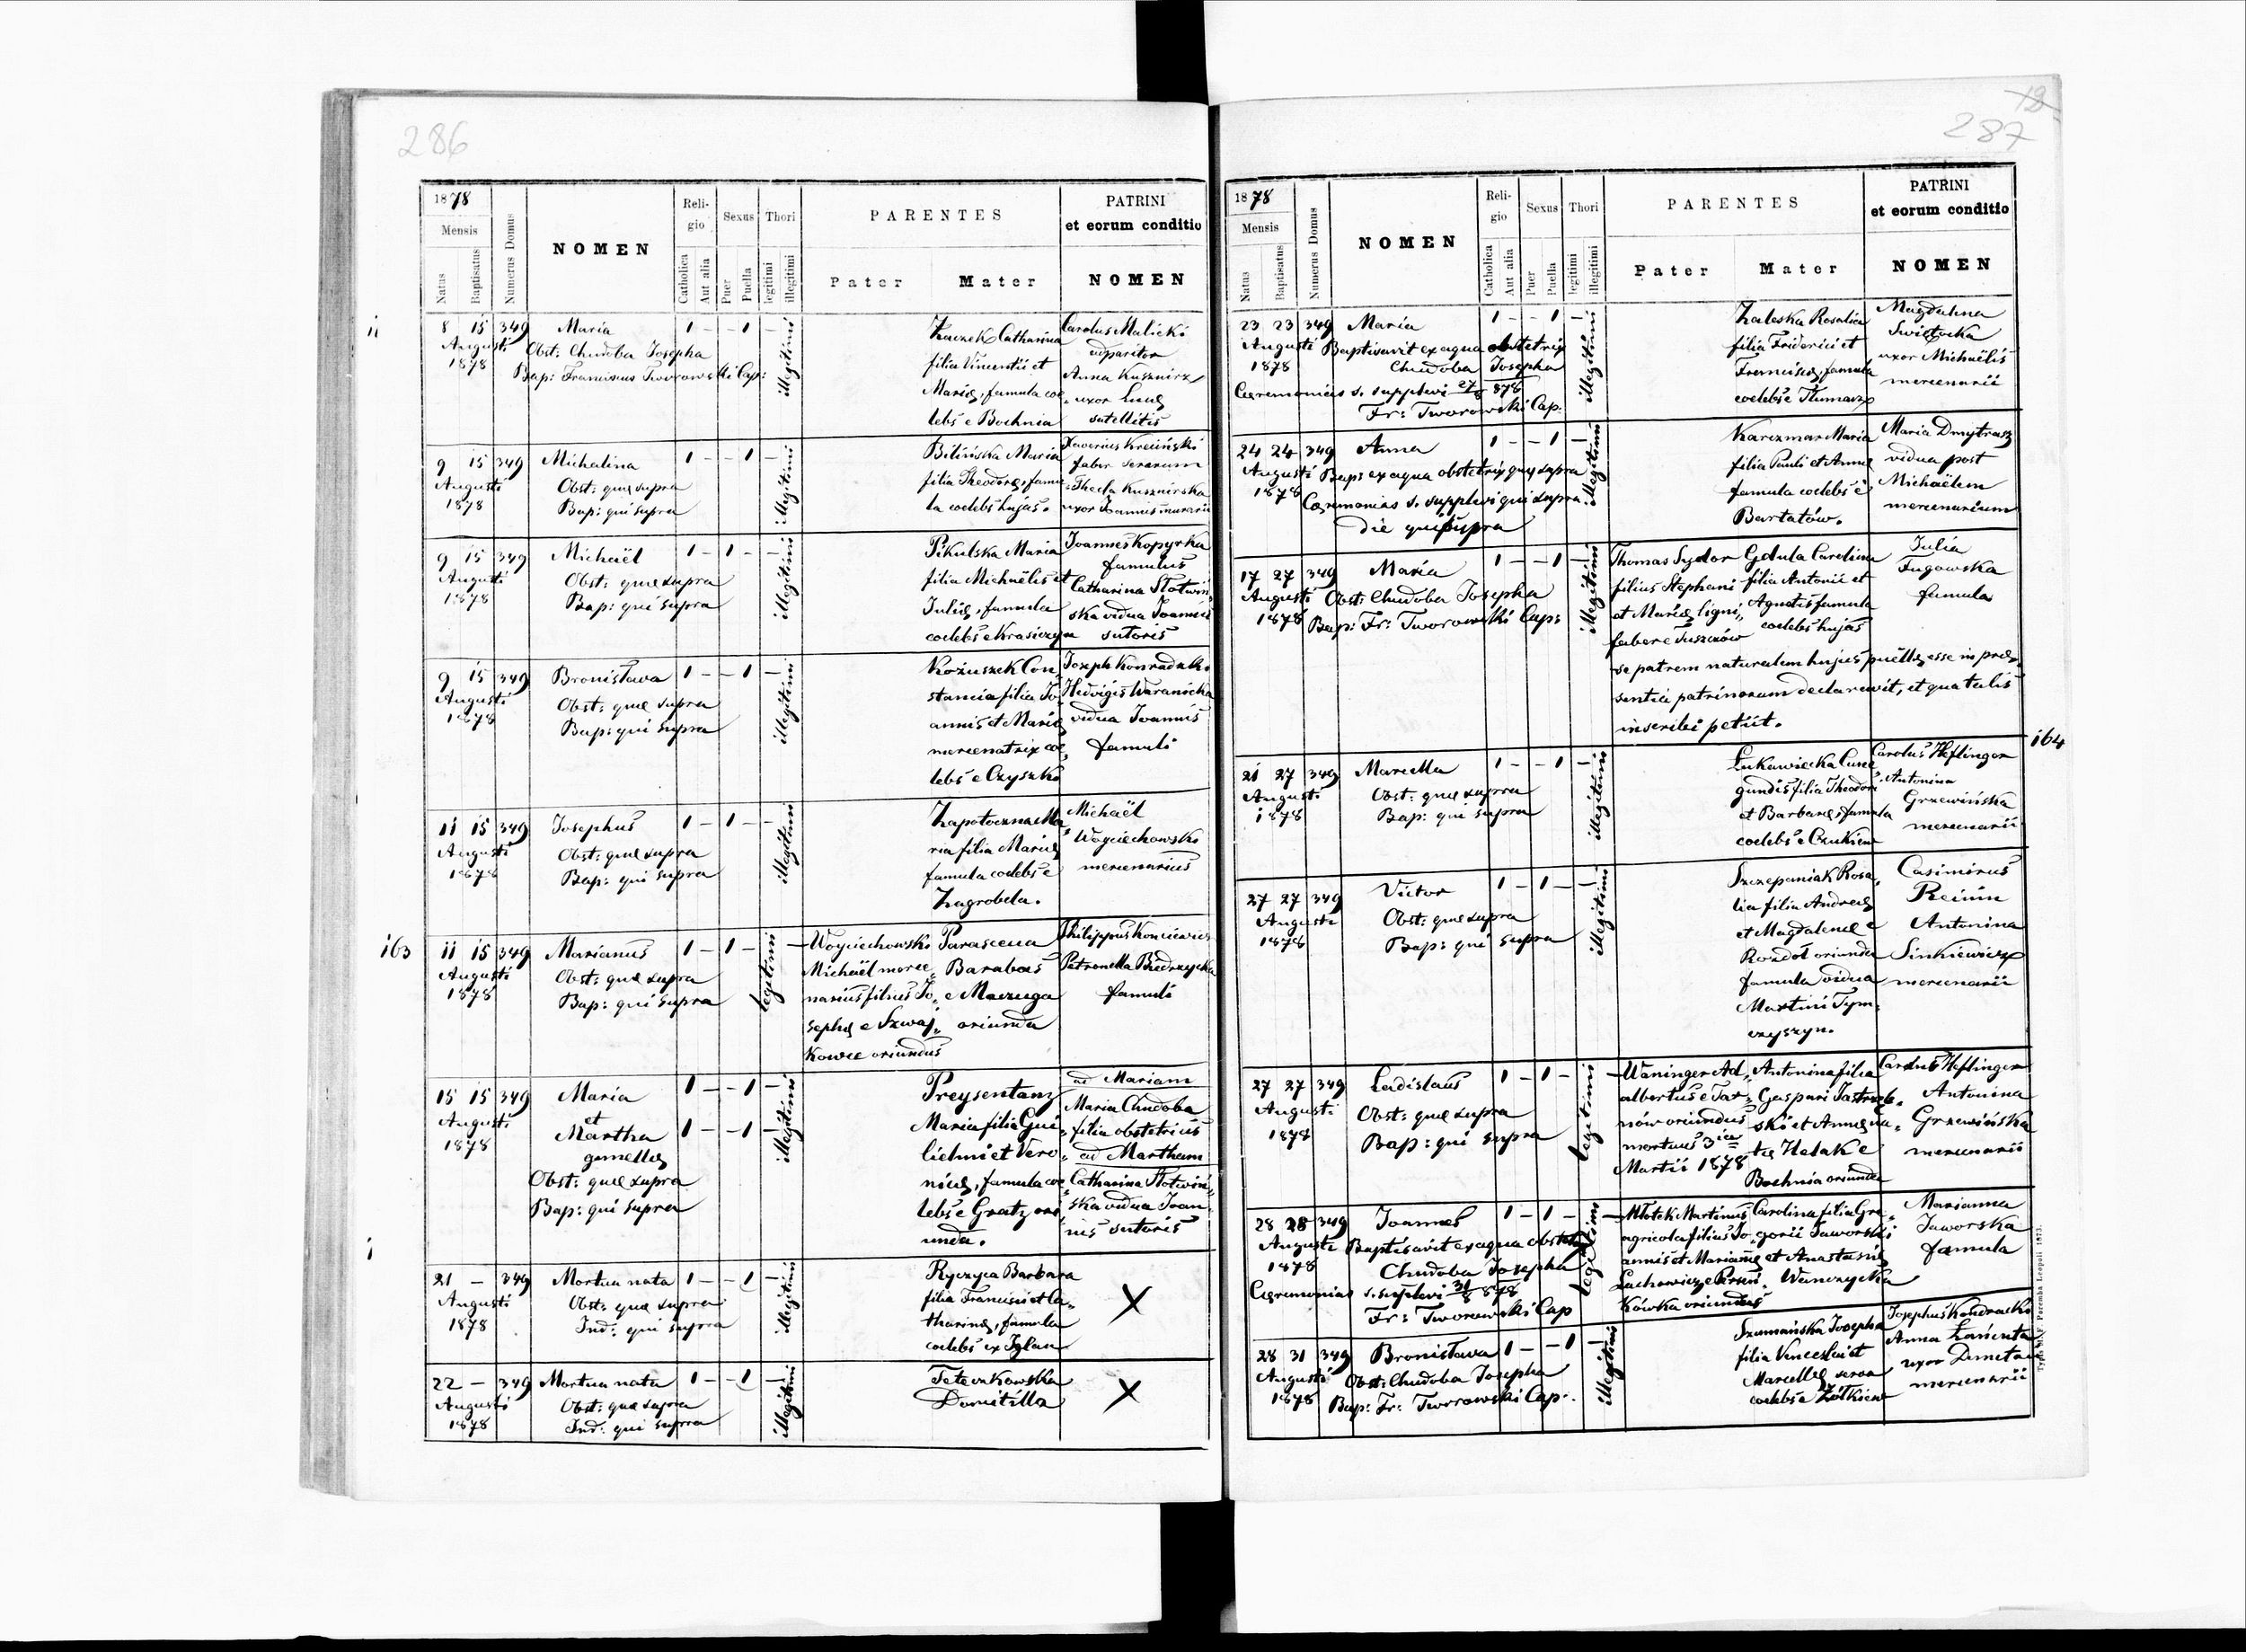 286
1878
Mensis
Natus
Baptisatus
Numerus Domus
NOMEN
Reli-
gio
Catholica
Aut alia
Sexus
Puer
Puella
Thori
legitimi
illegitimi
PARENTES
Pater
Mater
PATRINI
et eorum conditio
NOMEN
ii
8 15 349 Maria 1 – – 1 –
Augusti
1878
Obst: Chudoba Josepha
Bap: Franciscus Tworowski Cap:
illegitimi
Catharina
filia Vincentii et
Mariæ, famula coe-
lebs e Bochnia
Carolus Malicki
apparitor
Anna Kusznirz
uxor Lucæ
satellitis
9 15 349 Michalina 1 – – 1 –
Augusti
1878
Obst: quæ supra
Bap: qui supra
illegitimi
Bilińska Maria
filia Theodoræ, famu-
la coelebs hujas.
Xaverius
faber serarum
Thecla Kusznirska
uxor Joannis murarii
9 15 349 Michaël 1 – 1 – –
Augusti
1878
Obst: quæ supra
Bap: qui supra
illegitimi
Pikulska Maria
filia Michaëlis et
Juliæ, famula
coelebs e Krasiczyn
Joannes Kopyrka
famulus
Catharina Słotwiń-
ska vidua Joannis
sutoris
9 15 349 Bronisława 1 – – 1 –
Augusti
1878
Obst: quæ supra
Bap: qui supra
illegitimi
Kożuszek Con-
stancia filia Jo-
annis et Mariæ
mercenatrix coe-
lebs e Czyszki
Joseph Konradzki
Hedvigis Waranicka
vidua Joannis
famuli
11 15 349 Josephus 1 – 1 – –
Augusti
1878
Obst: quæ supra
Bap: qui supra
illegitimi
Zapotoczna Ma-
ria filia Mariæ
famula coelebs e
Zagrobela.
Michaël
Woyciechowski
mercenarius
163
11 15 349 Marianus 1 – 1 – –
Augusti
1878
Obst: quæ supra
Bap: qui supra
legitimi
Woyciechowski
Michaël merce-
narius filius Jo-
sephæ e Szwaj-
kowce oriundus
Parascena
Barabas
e Maczuga
oriunda
Philippus Konciewicz
Petronella Biedrzycka
famuli
15 15 349 Maria 1 – – 1 –
Augusti
1878
et
Martha 1 – – 1 –
gemellæ
Obst: quæ supra
Bap: qui supra
illegitimi
Preysentanz
Maria filia Gui-
lielmi et Vero-
nicæ, famula coe-
lebs e Gratz ori-
unda.
ad Mariam
Maria Chudoba
filia obstetricis
ad Martham
Catharina Słotwiń-
ska vidua Joan-
nis sutoris
i
21 – 349 Mortua nata 1 – – 1 –
Augusti
1878
Obst: quæ supra
Ind: qui supra
illegitimi
Ryczyca Barbara
filia Francisci et Ca-
tharinæ, famula
coelebs ex Iglau
X
22 – 349 Mortua nata 1 – – 1 –
Augusti
1878
Obst: quæ supra
Ind: qui supra
illegitimi
Domitilla
X
12
287
1878
Mensis
Natus
Baptisatus
Numerus Domus
NOMEN
Reli-
gio
Catholica
Aut alia
Sexus
Puer
Puella
Thori
legitimi
illegitimi
PARENTES
Pater
Mater
PATRINI
et eorum conditio
NOMEN
23 23 349 Maria 1 – – 1 –
Augusti
1878
Baptisavit ex aqua obstetrix
Chudoba Josepha
Cæremonias s. supplevi 27/8 878
Fr: Tworowski Cap.
illegitimi
Zaleska Rosalia
filia Friderici et
Franciscæ, famula
coelebs e Tłumacz
Magdalena
Swiętocka
uxor Michaëlis
mercenarii
24 24 349 Anna 1 – – 1 –
Augusti
1878
Bap: ex aqua obstetrix quæ supra
Cæremonias s. supplevi qui supra
die qui supra
illegitimi
Karczmar Maria
filia Pauli et Annæ
famula coelebs e
Bartatów.
Maria Dmytrasz
vidua post
Michaëlem
mercenarium
17 27 349 Maria 1 – – 1 –
Augusti
1878
Obst: Chudoba Josepha
Bap: Fr: Tworowski Cap:
illegitimi
Thomas Sydor
filius Stephani
et Mariæ ligni-
faber e Tuszków
Gdula Carolina
filia Antonii et
Agnetis famula
coelebs hujas
se patrem naturalem hujus puellæ esse in præ-
sentia patrinorum declaravit, et qua talis
inscribi petiit.
Julia
Fugowska
famula
164
21 27 349 Marcella 1 – – 1 –
Augusti
1878
Obst: quæ supra
Bap: qui supra
illegitimi
Łukawiecka Cune-
gundis filia Theodori
et Barbaræ, famula
coelebs e Czukiew
Carolus Heflinger
Antonina
Grzewińska
mercenarii
27 27 349 Victor 1 – 1 – –
Augusti
1878
Obst: quæ supra
Bap: qui supra
illegitimi
Szczepaniak Rosa-
lia filia Andreæ
et Magdalenæ e
Rozdół oriunda
famula vidua
Martini Tym-
czyszyn.
Casimirus
Antonina
Sinkiewicz
mercenarii
27 27 349 Ladislaus 1 – 1 – –
Augusti
1878
Obst: quæ supra
Bap: qui supra
legitimi
Waninger Ad-
albertus e Tar-
nów oriundus
mortuus 3ia
Martii 1878
Antonina filia
Gaspari Jastrzęb-
ski et Annæ na-
tæ Helak e
Bochnia oriunda
Carolus Heflinger
Antonina
Grzewińska
mercenarii
28 28 349 Joannes 1 – 1 – –
Augusti
1878
Baptisavit ex aqua obstetrix
Chudoba Josepha
Cæremonias s. supplevi 31/8 878
Fr: Tworowski Cap
legitimi
Młotek Martinus
agricola filius Jo-
annis et Mariannæ
Lachowicz e
oriundus
Carolina filia Gre-
gorii Jaworski
et Anastasiæ
Wanczycka
Marianna
Jaworska
famula
28 31 349 Bronisława 1 – – 1 –
Augusti
1878
Obst: Chudoba Josepha
Bap: Fr: Tworowski Cap:
illegitimi
Szumańska Josepha
filia Venceslai et
Marcellæ serva
coelebs e Żółkiew
Josephus Kondracki
Anna Łańcuta
uxor Demetrii
mercenarii